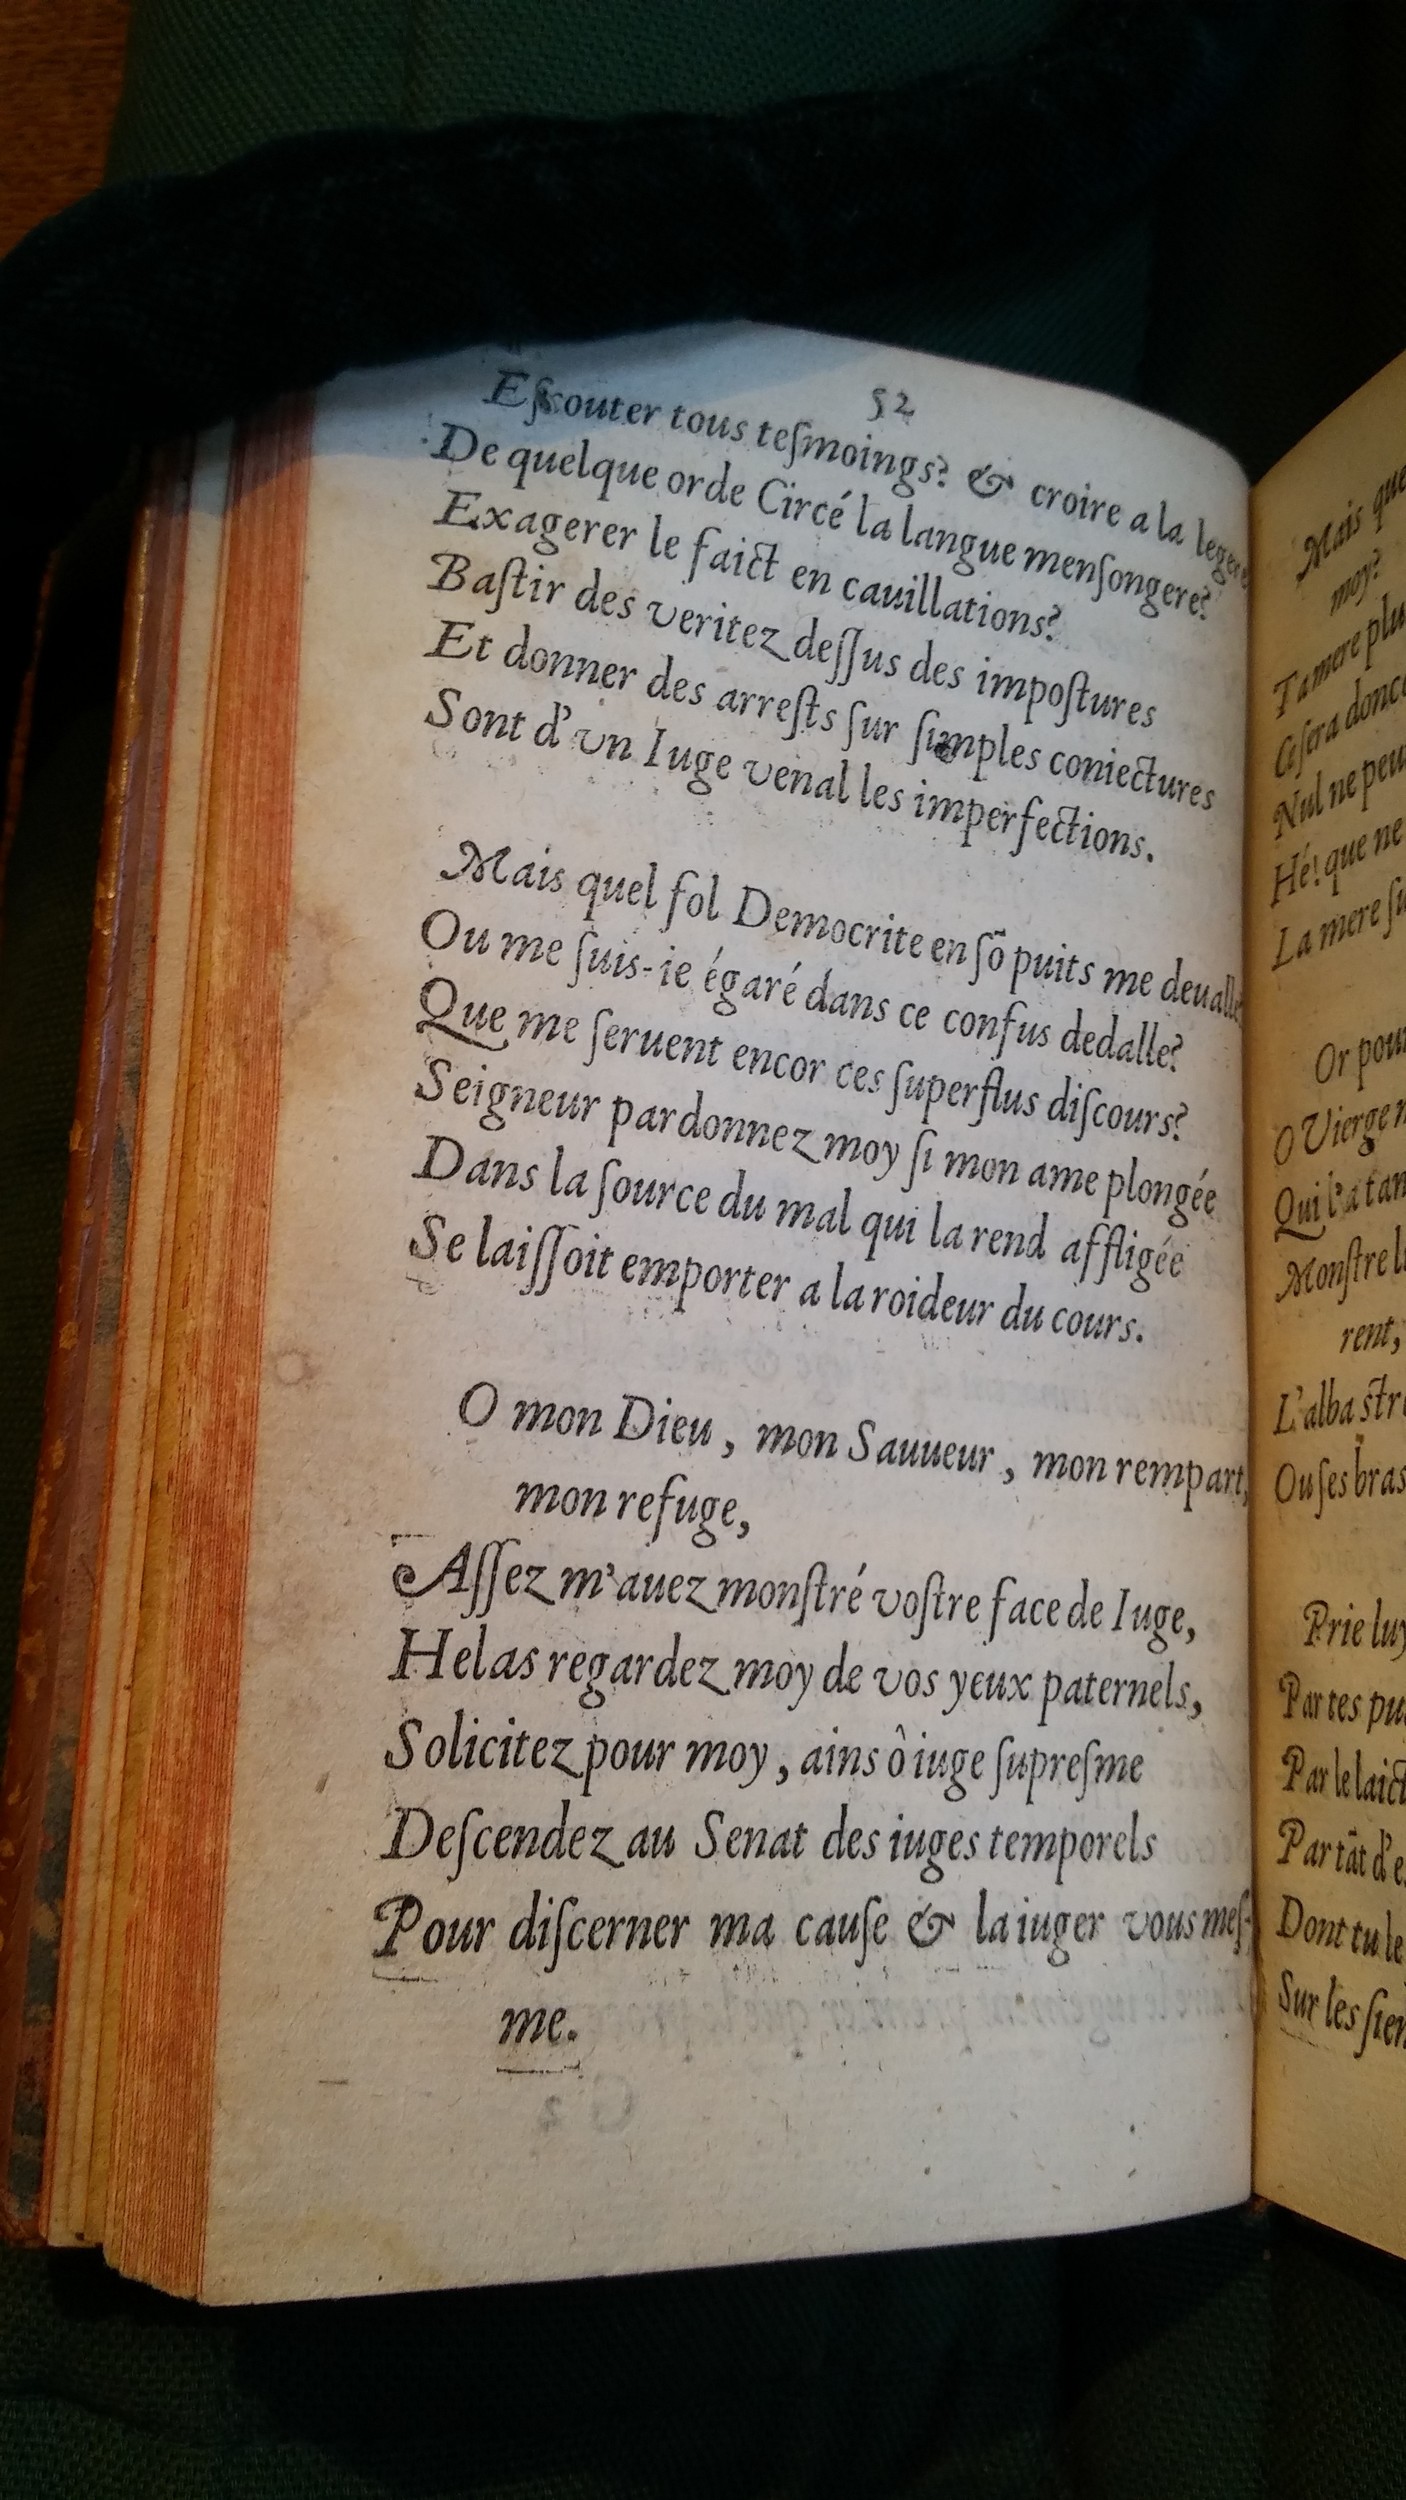 52
Eſcouter tous teſmoings? & croire a la legere
De quelque orde Circé la langue menſongere?
Exagerer le faict en cauillations?
Baſtir des veritez deſſus des impoſtures
Et donner des arreſts ſur ſimples coniectures
Sont d'vn Iuge venal les imperfections.
Mais quel fol Democrite en ſõ puits me deualle
Ou me ſuis-ie égaré dans ce confus dedalle?
Que me ſeruent encor ces ſuperflus diſcours?
Seigneur pardonnez moy ſi mon ame plongée
Dans la ſource du mal qui la rend affligée
Se laiſſoit emporter a la roideur du cours.
O mon Dieu, mon Sauueur, mon rempart,
mon refuge,
Aſſez m'auez monſtré voſtre face de Iuge,
Helas regardez moy de vos yeux paternels,
Solicitez pour moy, ains ô iuge ſupreſme
Deſcendez au Senat des iuges temporels
Pour diſcerner ma cauſe & la iuger vous meſ-
me.
Mais que
moy?
Ta mere plu
Ce ſera donc
Nul ne peu
Hé! que ne
La mere ſu
Or pour
O Vierge
Qui l'a tan
Monſtre l
rent,
L'albaſtr
Ou ſes bras
Prie luy
Par tes pu
Par le laict
Par tãt d'e
Dont tu le
Sur les ſien